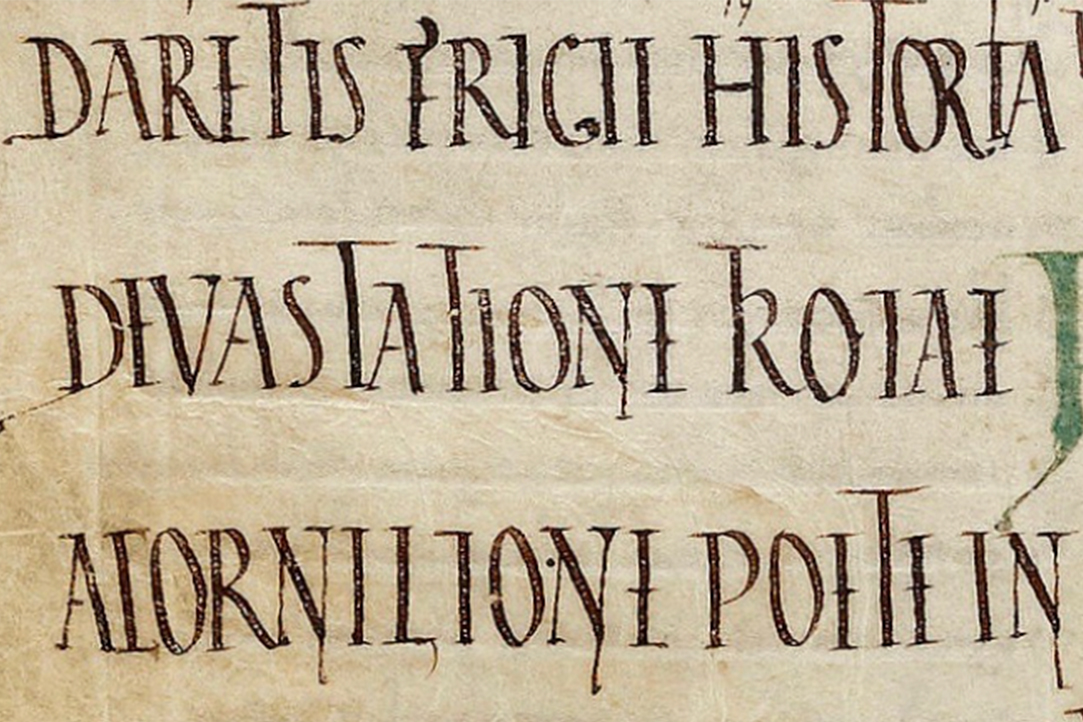 DARETIS FRIGII HISTORIA
DEVASTATIONE TROIAE
ACORNILIO·NE POETE IN